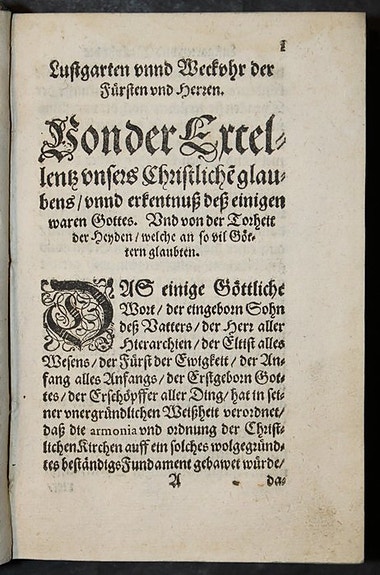 1
Lustgarten vnnd Weckvhr der
Fürsten vnd Herren.
Von der Excel-
lentz vnsers Christlichē glau-
bens / vnnd erkentnuß deß einigen
waren Gottes. Vnd von der Torheit
der Heyden / welche an so vil Göt-
tern glaubten.
DAS einige Göttliche
Wort / der eingeborn Sohn
deß Vatters / der Herr aller
Hierarchien / der Eltist alles
Wesens / der Fürst der Ewigkeit / der An-
fang alles Anfangs / der Erstgeborn Got-
tes / der Erschöpffer aller Ding / hat in sei-
ner vnergründlichen Weißheit verordnet /
daß die armonia vnd ordnung der Christ-
lichen Kirchen auff ein solches wolgegründ-
tes beständigs Fundament gebawet würde /
A da-